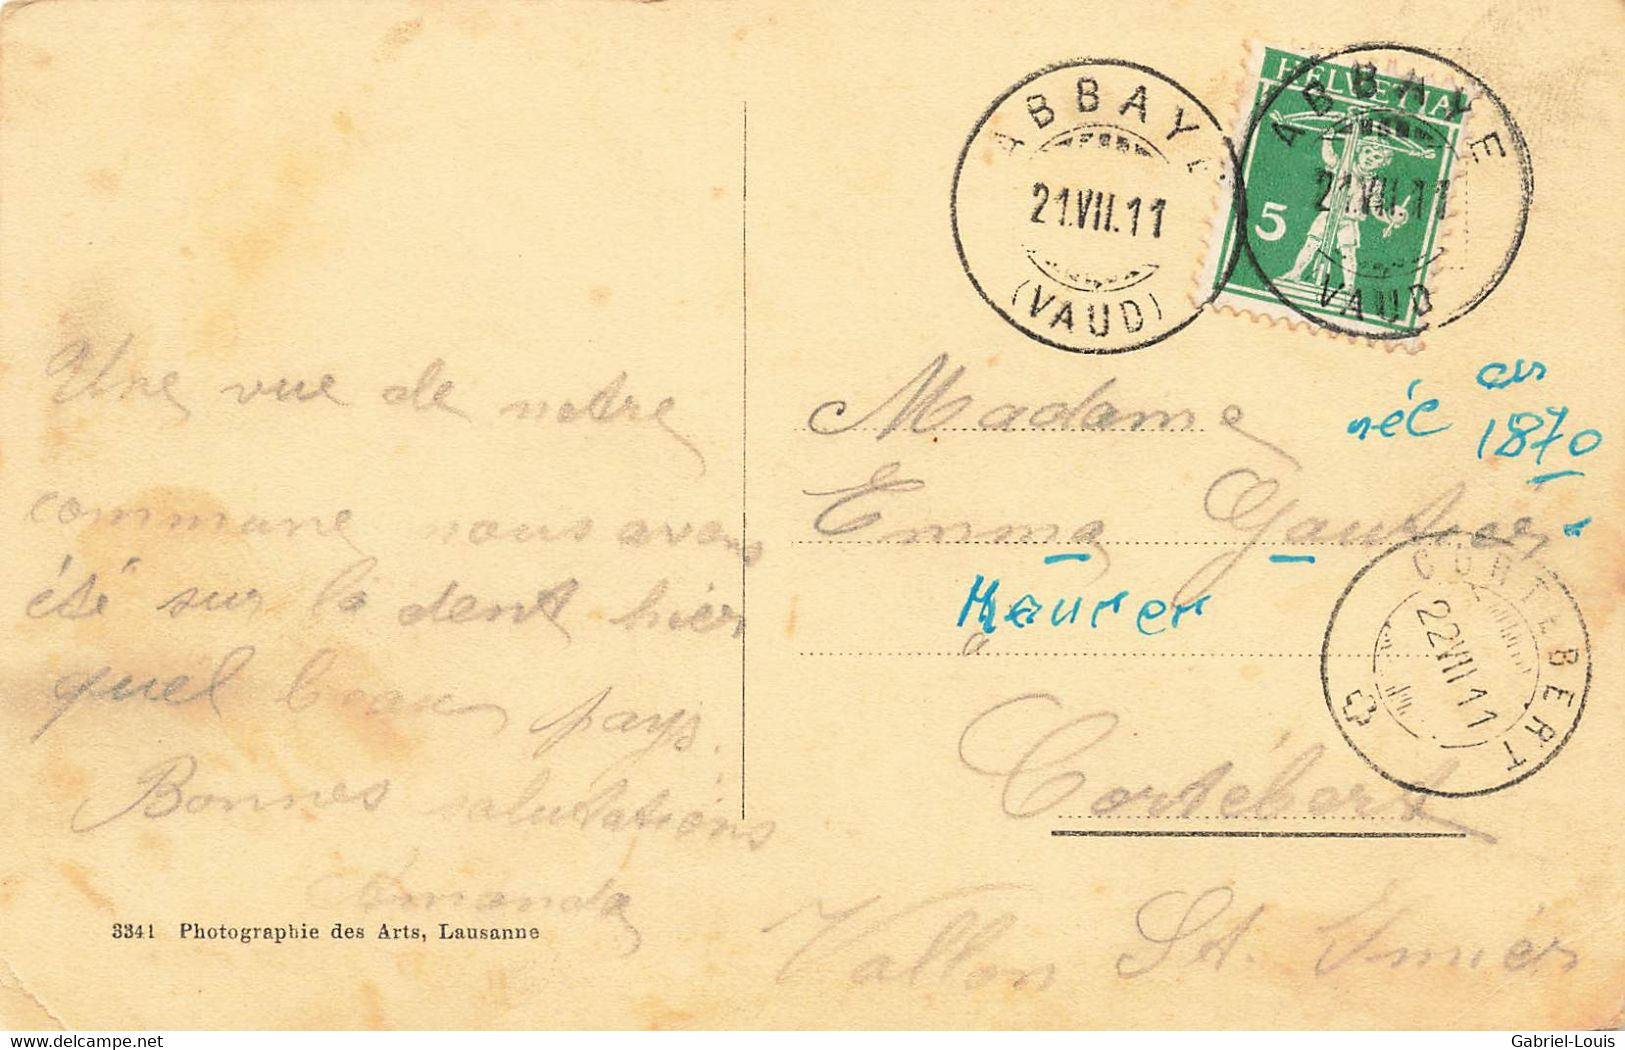 Une vue de notre
commune nous avons
été sur la dent hier
quel beau pays.
Bonnes salutations
Amanda
3341 Photographie des Arts, Lausanne
ABBAYE
21.VII.11
(VAUD)
HELVETIA
5
ABBAYE
21.VII.11
VAUD
Madame
née en
1870
Emma Gautier
Maurer
à
CORTEBERT
22VII11
Cortébert
Vallon St. Imier
www.delcampe.net
Gabriel-Louis